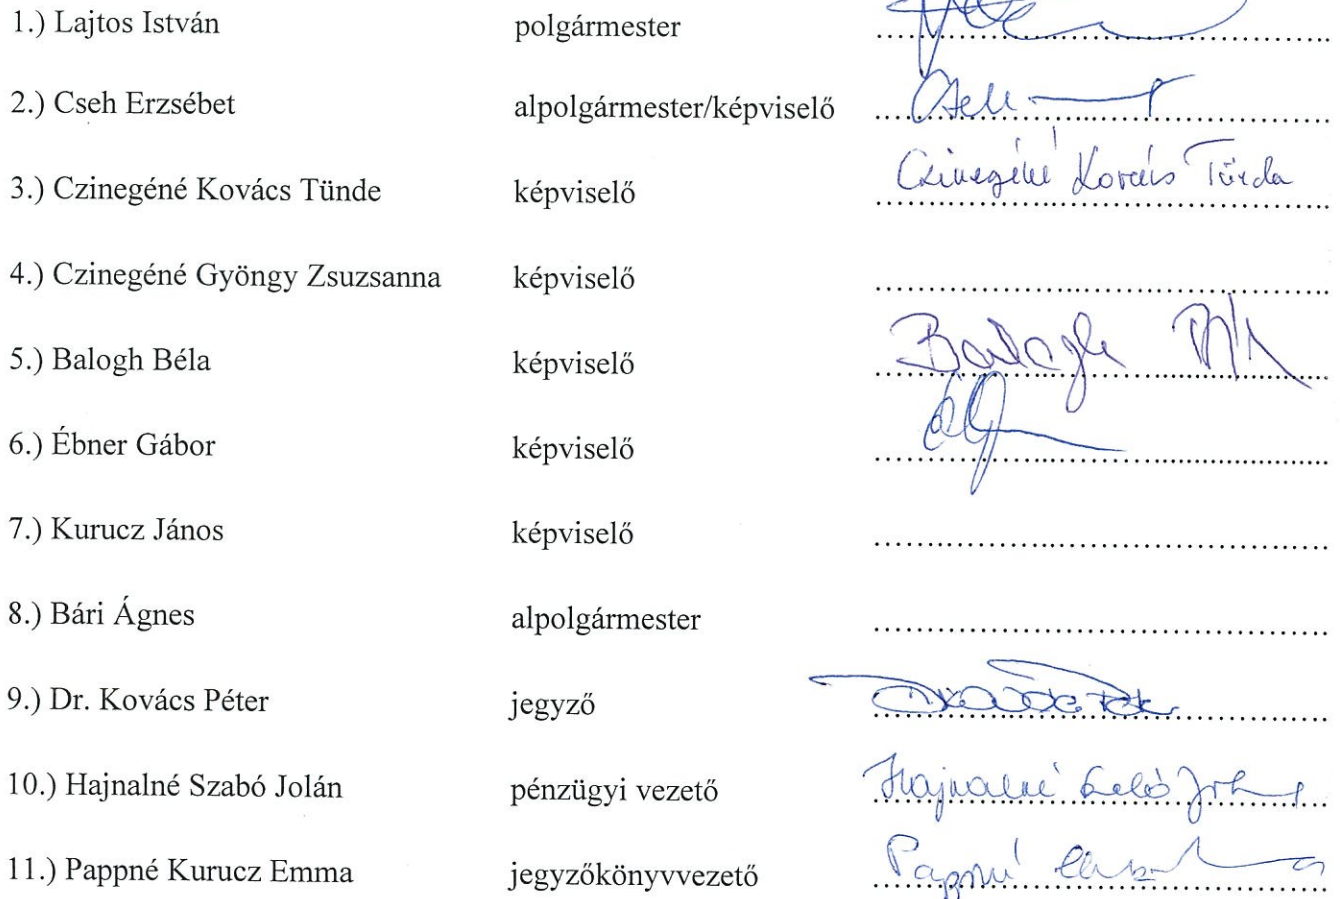 1.) Lajtos István polgármester ....................
2.) Cseh Erzsébet alpolgármester/képviselő Cseh ....................
3.) Czinegéné Kovács Tünde képviselő Czinegéné Kovács Tünde ....................
4.) Czinegéné Gyöngy Zsuzsanna képviselő ....................
5.) Balogh Béla képviselő Balogh ....................
6.) Ébner Gábor képviselő ....................
7.) Kurucz János képviselő ....................
8.) Bári Ágnes alpolgármester ....................
9.) Dr. Kovács Péter jegyző ....................
10.) Hajnalné Szabó Jolán pénzügyi vezető Hajnalné Szabó ....................
11.) Pappné Kurucz Emma jegyzőkönyvvezető Pappné ....................